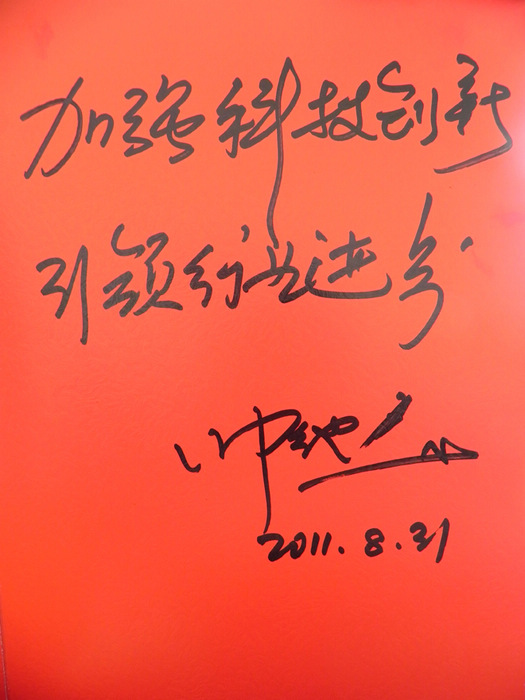 加强科技创新
引领行业进步
2011.8.31